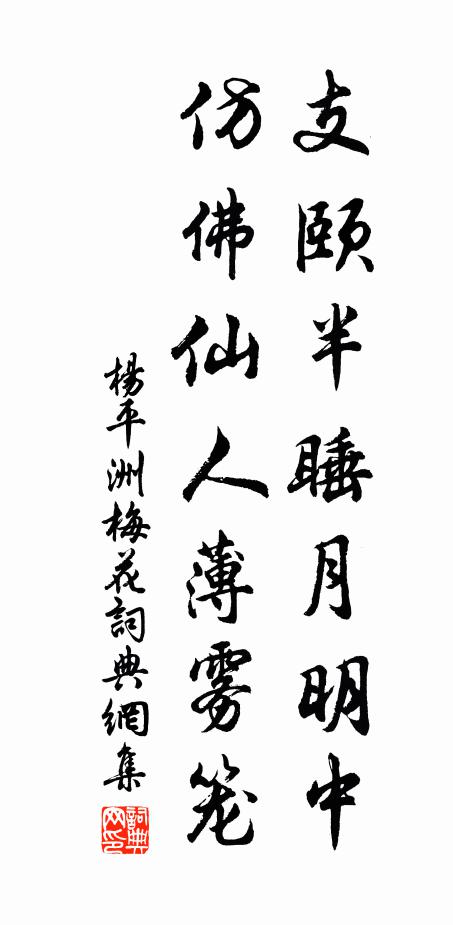 支頤半睡月明中
仿佛仙人薄雾笼
楊平洲梅花詞典網集
詞典网印